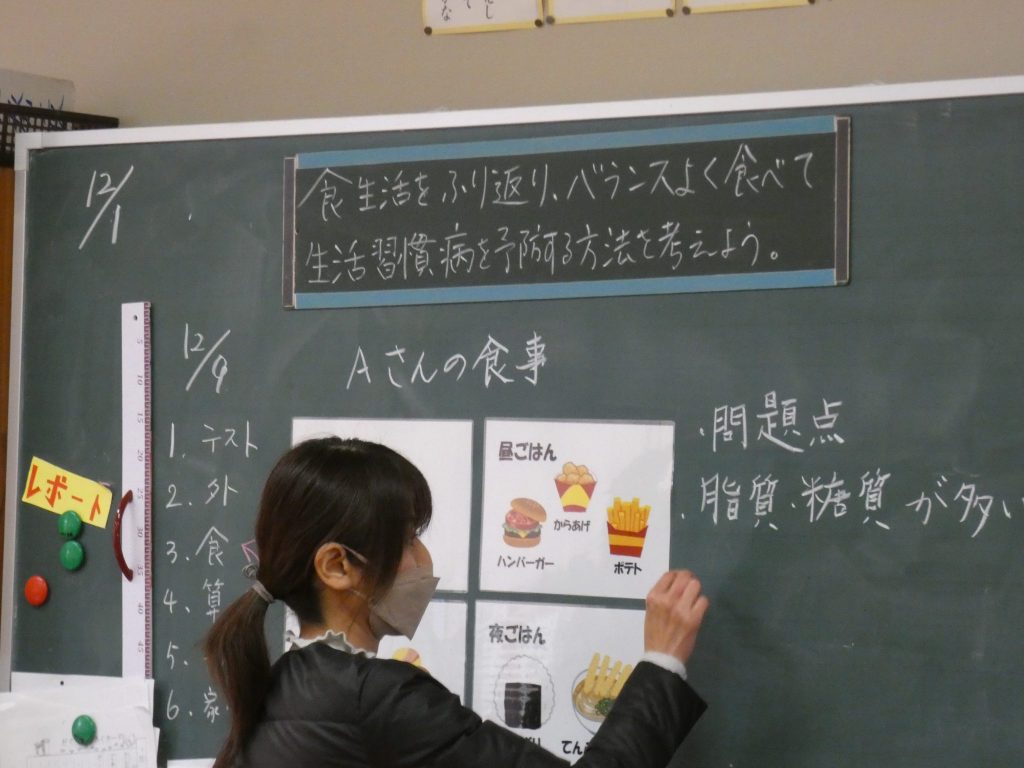 12/1
食生活をふり返り、バランスよく食べて
生活習慣病を予防する方法を考えよう。
12/9
Aさんの食事
1. テスト
2. 外
3. 食
4. 算
5.
6. 家
レポート
昼ごはん
からあげ
ハンバーガー
ポテト
夜ごはん
・問題点
・脂質・糖質が多い
5
10
15
20
25
30
35
40
45